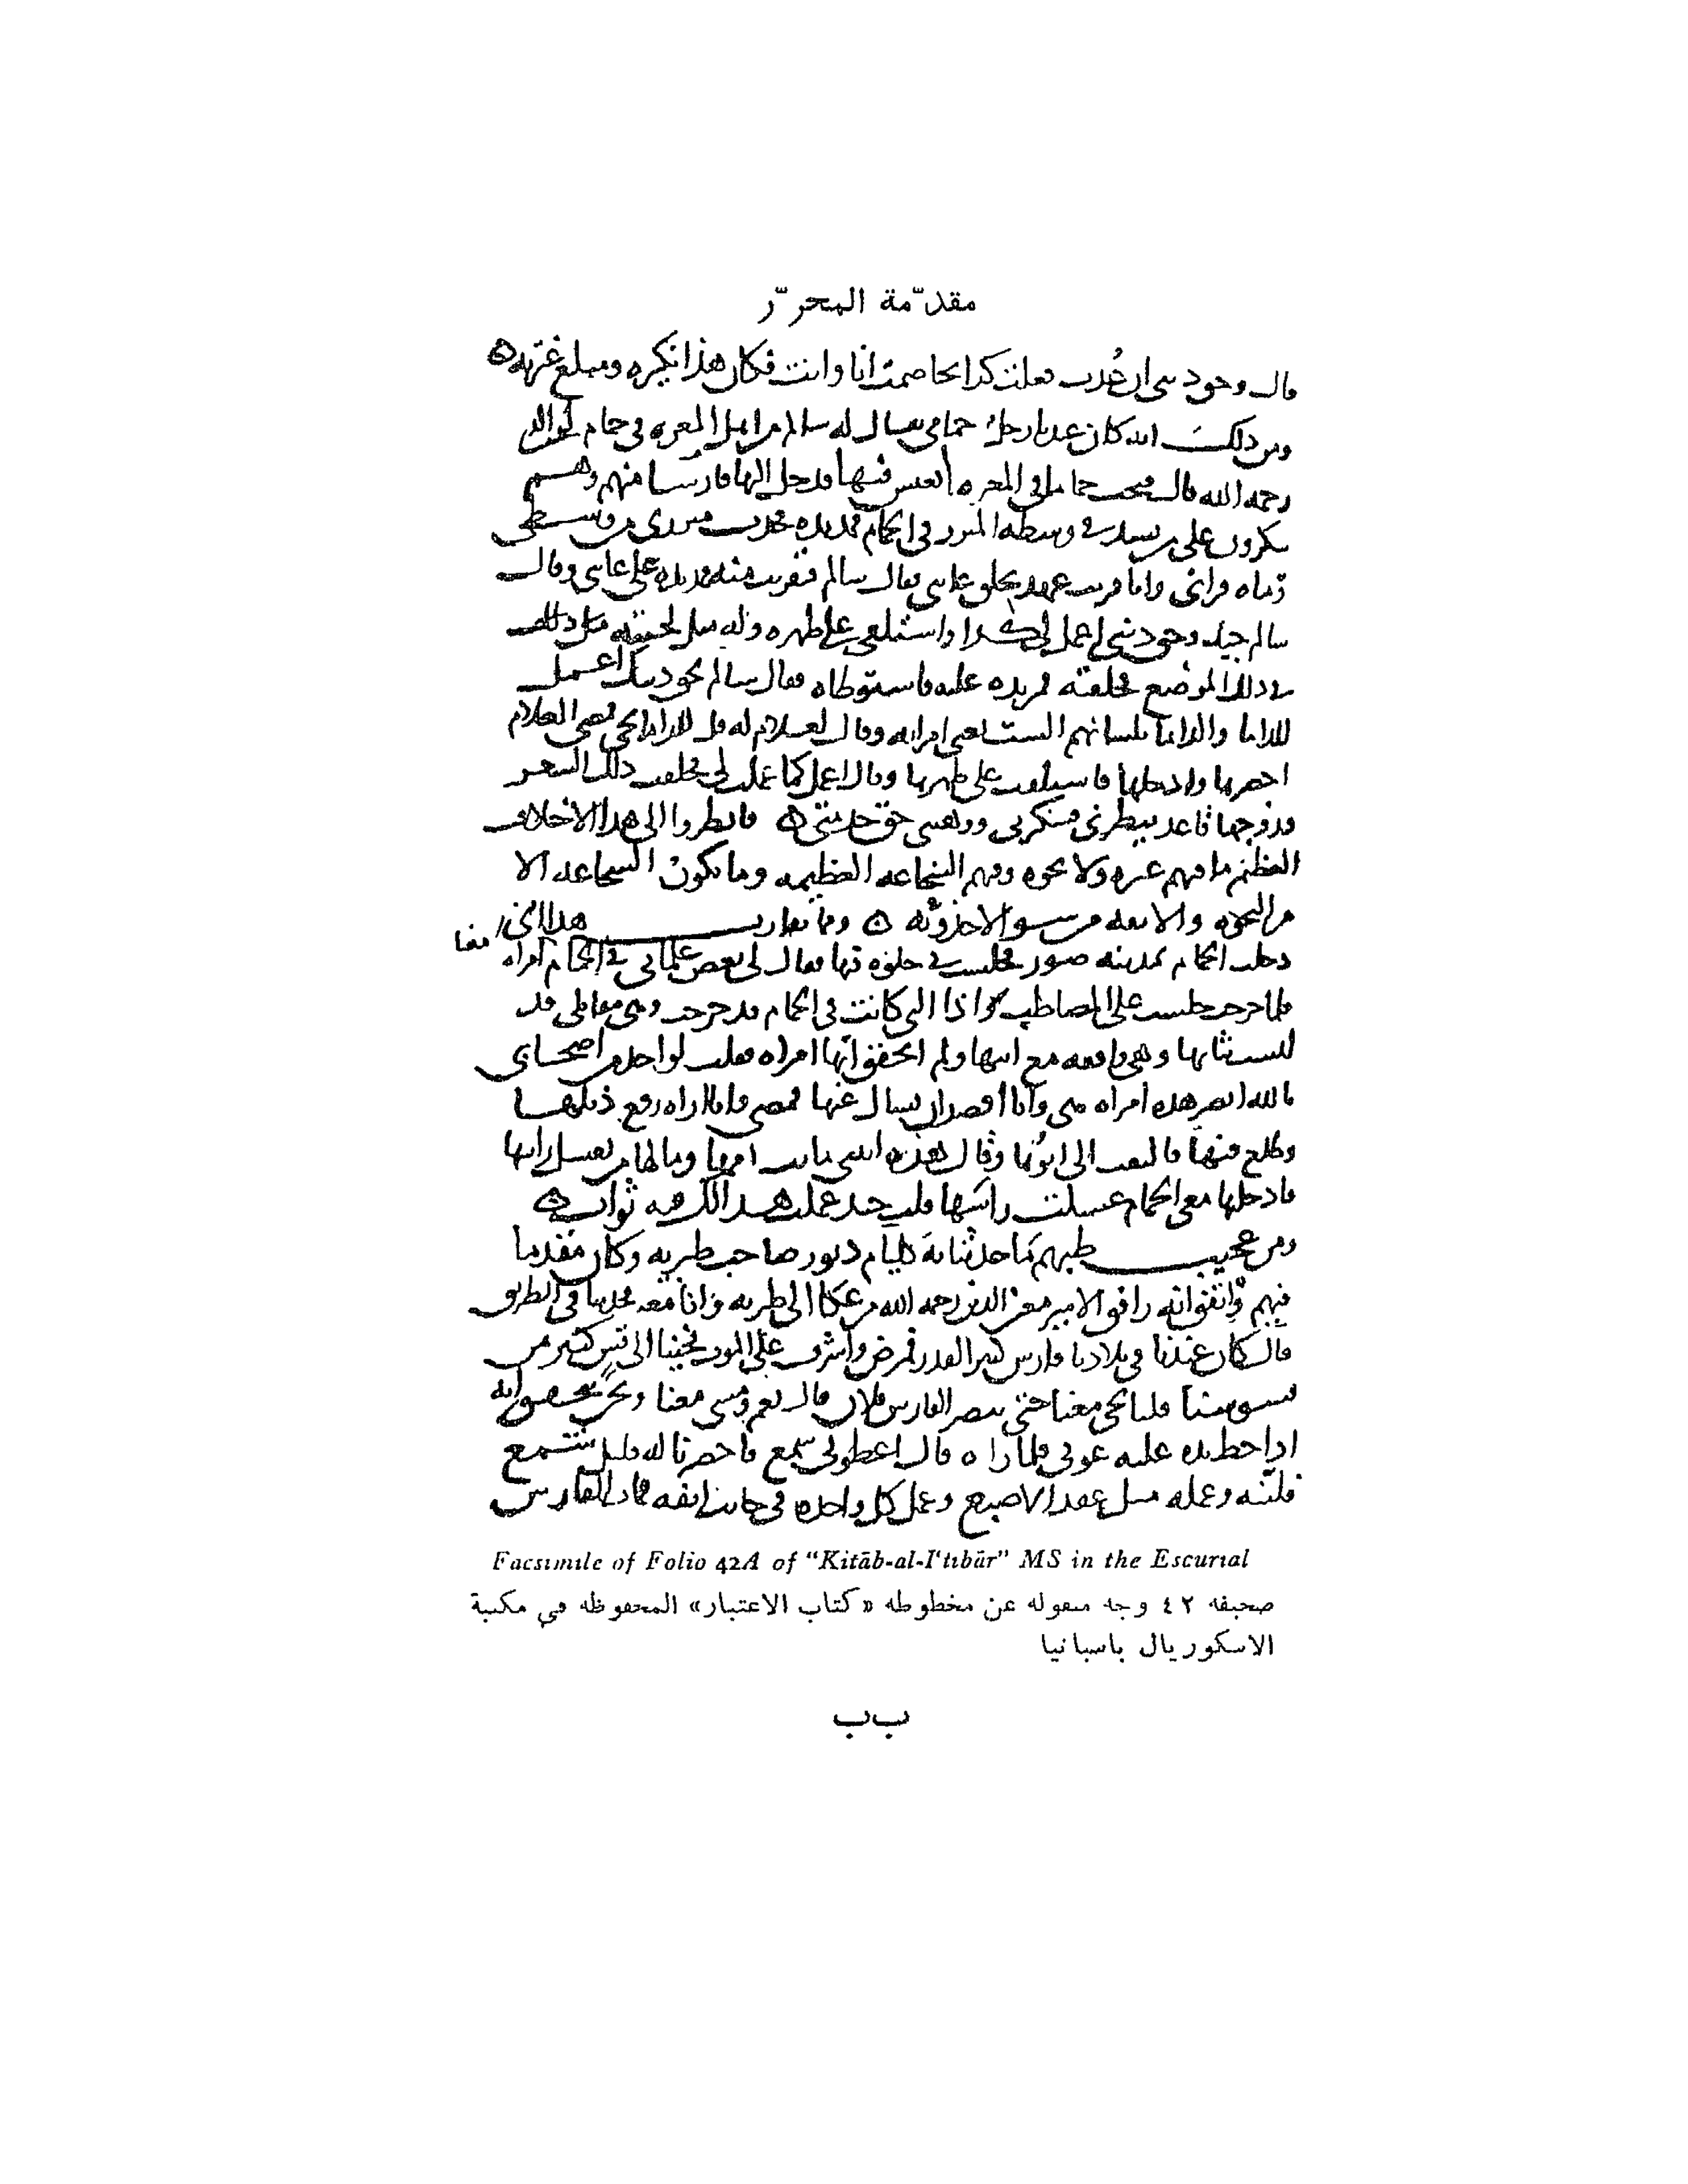 مقدّمة المحرّر
قال وحق ديني ان عدت فعلت كذا تخاصمت انا وانت فكان هذا نكيره ومبلغ غيرته
ومن ذلك انه كان عندنا رجل حمامي يقال له سالم من اهل المعرة في حمام لوالدي
رحمه الله قال فتحت حماما في المعرة اتعيش فيها فدخل اليها فارس منهم وهم
ينكرون على من يشد في وسطه المئزر في الحمام فمد يده فجذب مئزري من وسطي
رماه فراني وانا قريب عهد بحلق عانتي فقال سالم فتقربت منه فمد يده على عانتي وقال
سالم جيد وحق ديني اعمل لي كذا واستلقى على ظهره وله مثل لحيته في ذلك
في ذلك الموضع فحلقته فمر يده عليه فاستوطاه فقال سالم بحق دينك اعمل
للداما والداما بلسانهم الست يعني امراته وقال لغلام له قل للداما تجي فمضى الغلام
احضرها وادخلها فاستلقت على ظهرها وقال اعمل كما عملت لي فحلقت ذلك الشعر
وزوجها قاعد ينظرني فشكرني ووهبني حق خدمتي فانظروا الى هذا الاختلاف
العظيم ما فيهم غيرة ولا نخوة وفيهم الشجاعة العظيمة وما تكون الشجاعة الا
من النخوة والانفة من سو الاحدوثة ومما يقارب هذا انني
دخلت الحمام بمدينة صور فجلست في خلوة فيها فقال لي بعض غلماني في الحمام امراة معنا
فلما خرجت جلست على المصاطب واذا التي كانت في الحمام قد خرجت وهي مقابلي قد
لبست ثيابها وهي واقفة مع ابيها ولم اتحقق انها امراة فقلت لواحد من اصحابي
بالله ابصر هذه امراة هي وانا اقصد ان يسال عنها فمضى وانا اراه رفع ذيلها
وطلع فيها فالتفت الي ابوها وقال هذه ابنتي ماتت امها وما لها من يغسل راسها
فادخلتها معي الحمام غسلت راسها قلت جيد عملت هذا لك فيه ثواب
ومن عجيب طبهم ما حدثنا به كليام دبور صاحب طبرية وكان مقدما
فيهم واتفق انه رافق الامير معين الدين رحمه الله من عكا الى طبرية وانا معه فحدثنا في الطريق
قال كان عندنا في بلادنا فارس كبير القدر فمرض واشرف على الموت فجينا الى قس كبير من
قسوسنا قلنا تجي معنا حتى تبصر الفارس فلان قال نعم ومشى معنا ونحن نتحقق انه
اذا حط يده عليه عوفي فلما راه قال اعطوني شمع فاحضرنا له قليل شمع
فلينه وعمله مثل عقد الاصبع وعمل كل واحدة في جانب انفه فمات الفارس
Facsimile of Folio 42A of "Kitāb-al-I'tibār" MS in the Escurial
صحيفة ٤٢ وجه منقولة عن مخطوطة «كتاب الاعتبار» المحفوظة في مكتبة
الاسكوريال باسبانيا
ب ب